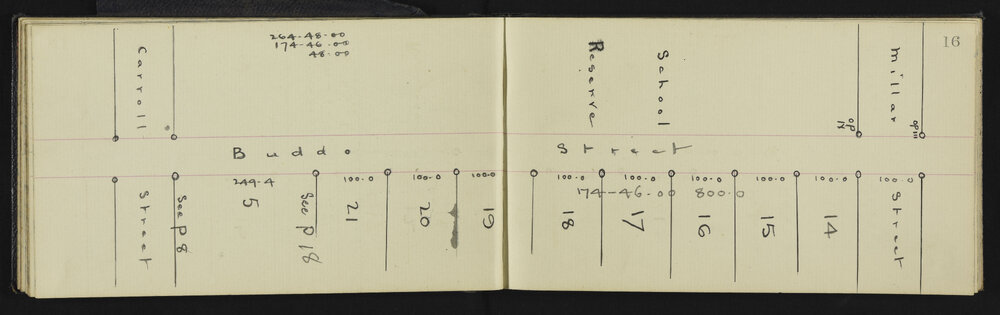 264-48-00
174-46-00
48-00
16
Carroll
School
Reserve
Millar
op IX
op III
Buddo Street
249-4
100-0
100-0
100-0
100-0
100-0
100-0
100-0
100-0
100-0
174-46-00
800-0
Street
See p 8
5
See p 18
21
20
19
18
17
16
15
14
Street